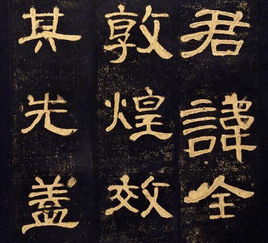 君諱全
敦煌效
其先盖